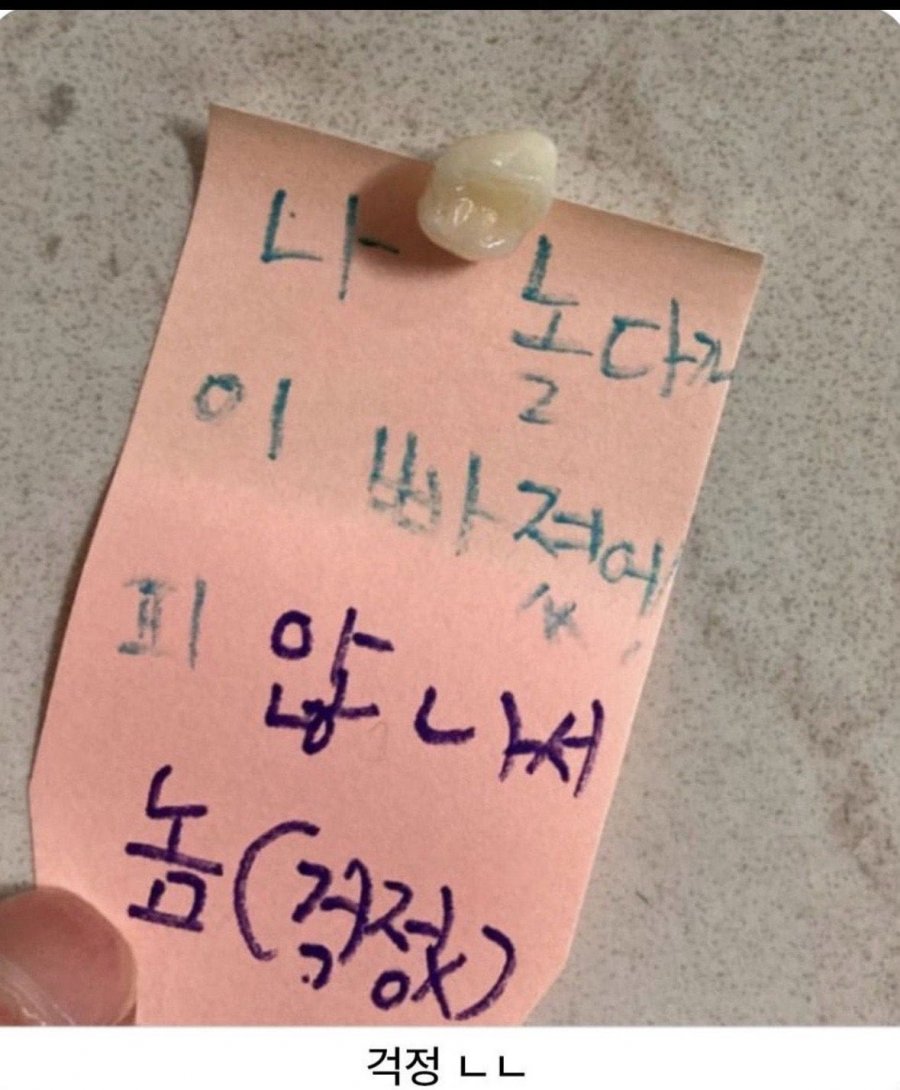 나 놀다가
이 빠젔어
피 않나서
놈(걱정x)
걱정 ㄴㄴ